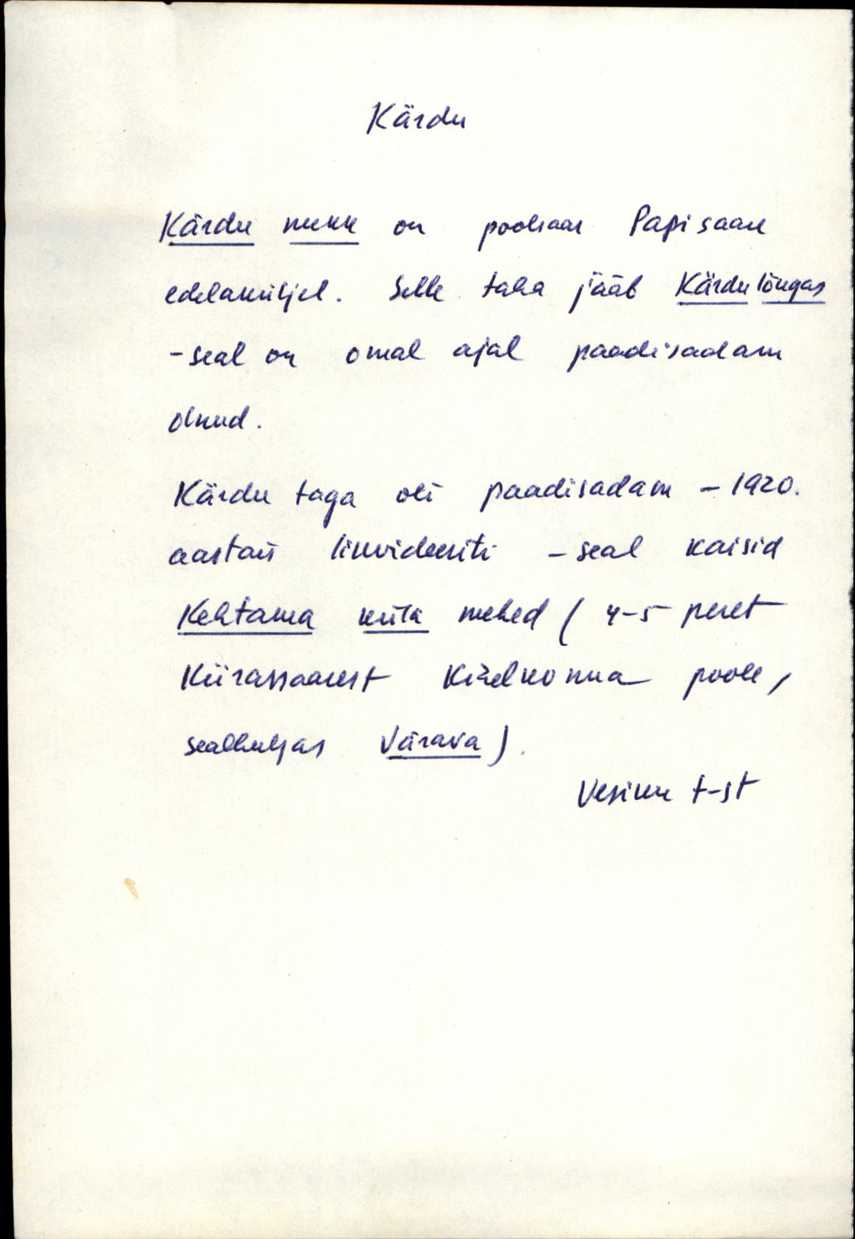 Kärdu
Kärdu nukk on poolsaar Papisaare
edelaküljel. Selle taha jääb Kärdu lõugas
- seal on omal ajal paadisadam
olnud.
Kärdu taga oli paadisadam - 1920.
aastail likvideeriti - seal käisid
Kehtama küla mehed ( 4-5 peret
Kiirassaarest Kihelkonna poole,
sealhulgas Värava ) .
t-st